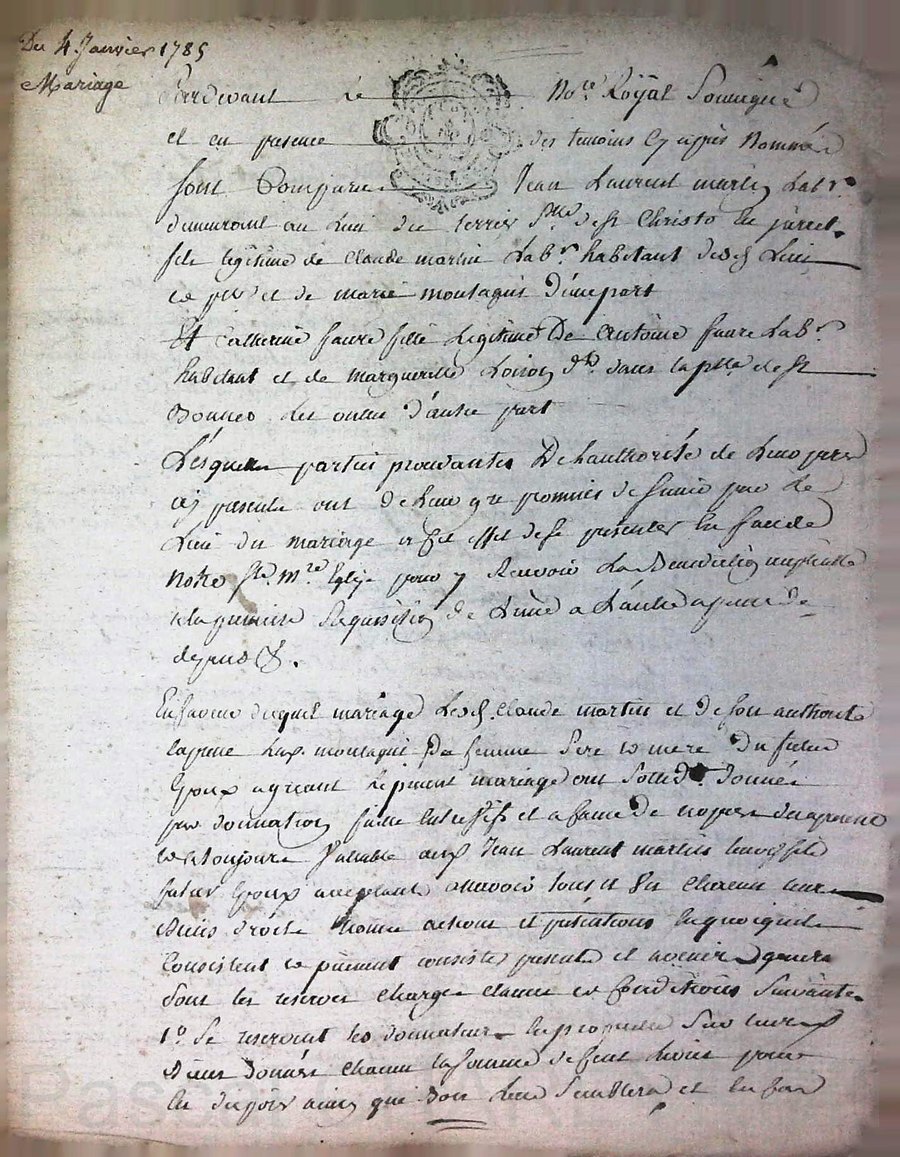 Du 4 Janvier 1785
Mariage
Pardevant le No.re Royal Soussigné
et en presence des temoins Cy apres Nommés
sont Comparus Jean Laurent martin Lab.r
demeurant au Lieu du terrier de st Christo en
fils legitime de Claude martin Lab.r habitant dud. Lieu
et de marie montagne d'une part
Et Catherine faure fille Legitime De Antoine faure Lab.r
habitant et de marguerite dans la de st
Bonnet Les d'autre part
Lesquelles parties procedantes De Lauthorité de Leurs peres
cy presents ont de Leur gré promis de s'unir par Le
Lien du mariage et a Cet effet de se presenter En face de
notre ste. m.re Eglise pour y Recevoir La Benediction nuptiale
a la premiere Requisition de L'une a L'autre a peine de
depends &.
En faveur duquel mariage Led. Claude martin et de son authorité
marie montagne sa femme Pere et mere du futur
Epoux agreant le present mariage ont donné
par donnation faite entre vifs et a cause de noces
et toujours Valable aud. Jean Laurent martin leur fils
futur Epoux acceptant scavoir tous et Un Chacun leurs
Biens droits noms actions et pretentions en quoi qu'ils
Consistent et puissent consister presents et avenir
sous les reserves charges clauses et Conditions Suivantes
1.o Se reservent les donnateurs sur leurs
Biens donnés Chacun la somme de Cent pour
En disposer ainsi que Bon Leur Semblera et